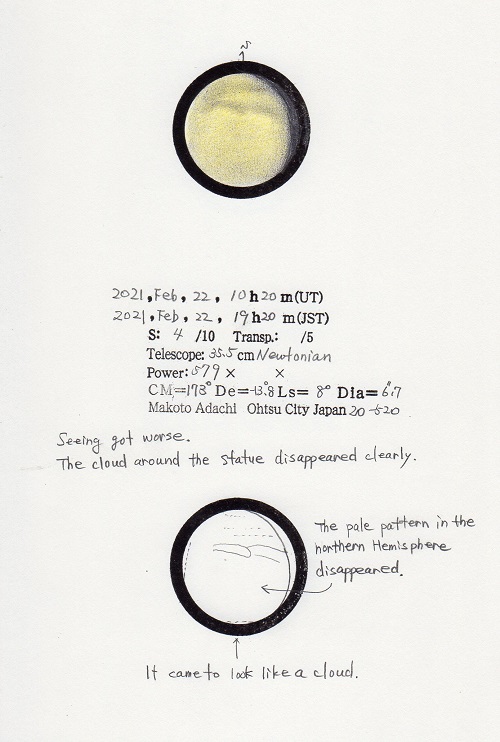 N
2021, Feb, 22, 10 h 20 m (UT)
2021, Feb, 22, 19 h 20 m (JST)
S: 4 /10 Transp.: /5
Telescope: 35.5 cm Newtonian
Power: 579 × ×
CM=173° De=-13.8 Ls= 8° Dia= 6.7
Makoto Adachi Ohtsu City Japan 20-520
Seeing got worse.
The cloud around the statue disappeared clearly.
The pale pattern in the
northern Hemisphere
disappeared.
It came to look like a cloud.